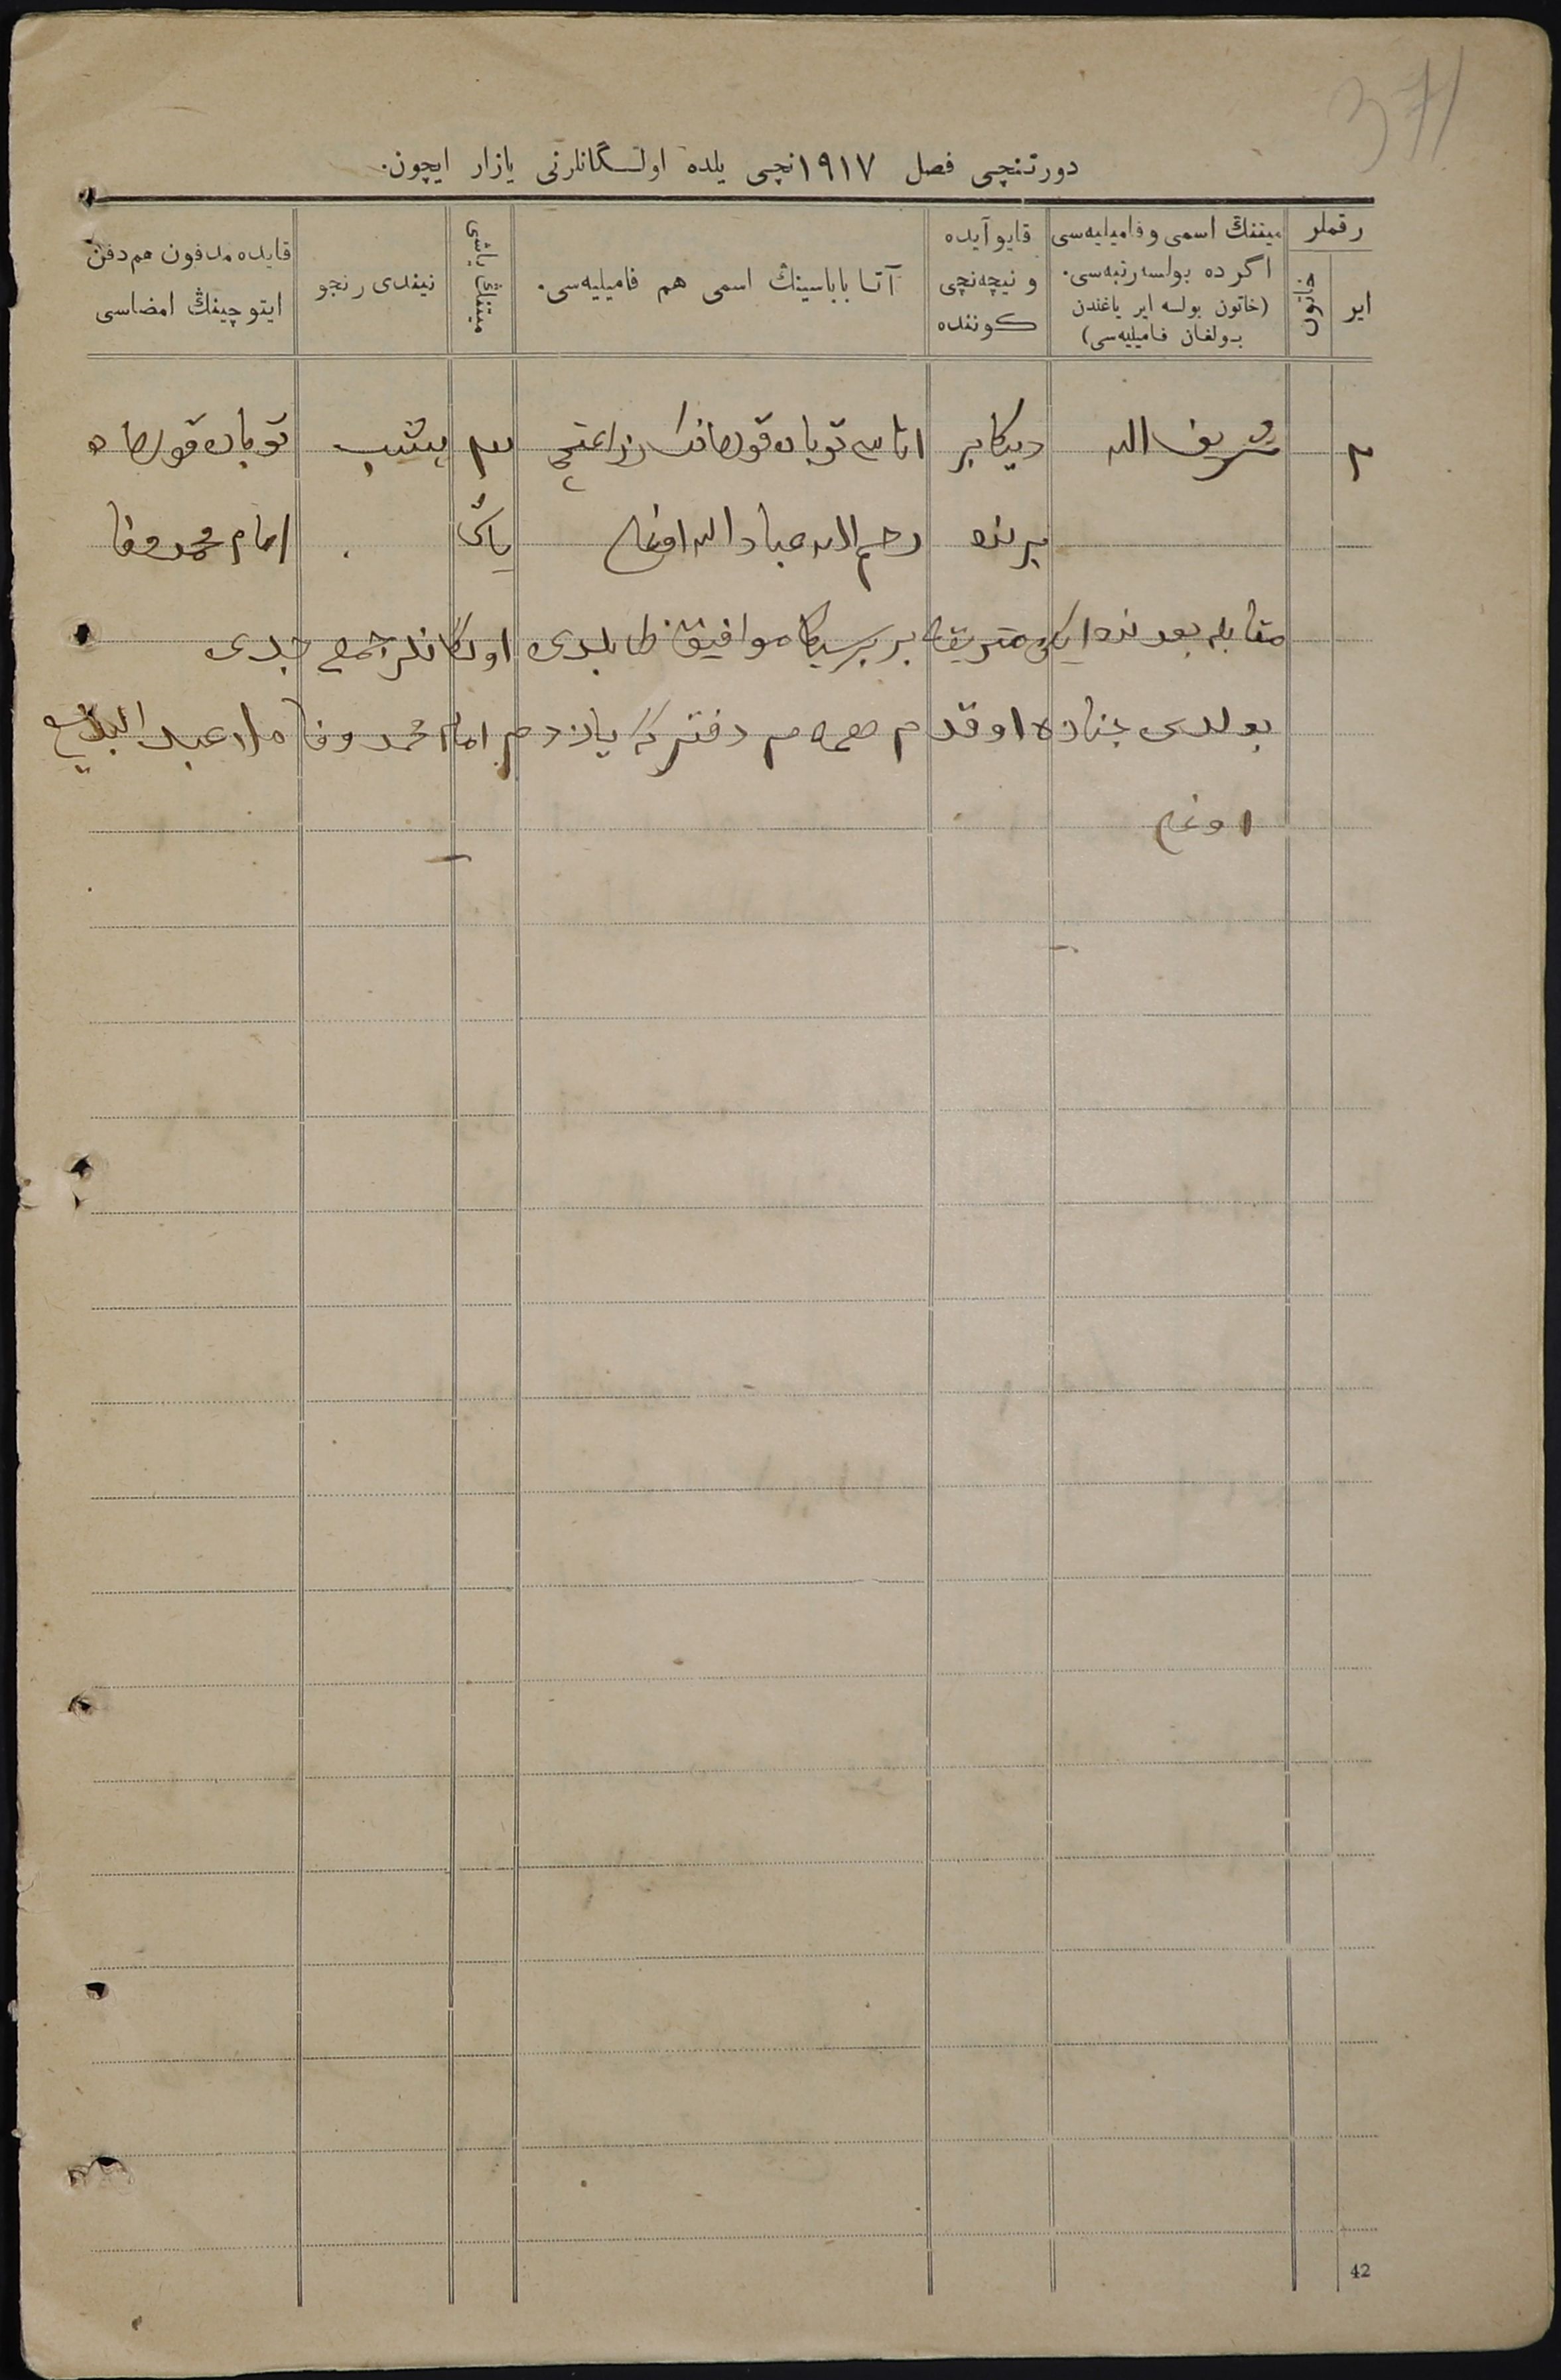 371
دورتنچی فصل ۱۹۱۷نچی یلده اولـگانلرنی یازار ایچون.
رقملر
ایر
خاتون
میتنڭ اسمی و فامیلیه‌سی
اگر ده بولسه رتبه‌سی.
(خاتون بولسه ایر یاغندن
بولغان فامیلیه‌سی)
قایو آیده
و نیچه‌نچی
کوننده
آتا باباسینڭ اسمی هم فامیلیه‌سی.
میتنڭ یاشی
نیندی رنجو
قایده مدفون هم دفن
ایتوچینڭ امضاسی
شریف الله
دیکابر
اتاسی توبان قورصانك زراعتچی
یتب
توبان قورصاده
برنده
رحیم الله عباد الله اوغلی
یاش
امام محمد وفا
مقابله بعدنده ایکی متریقه بر برسیکا موافیق طابلدی اولکانلر جمعی
بولدی جنازه اوقدم دفترکه یازدم امام محمد وفا ملا عبد البدیع
اوغلی
42